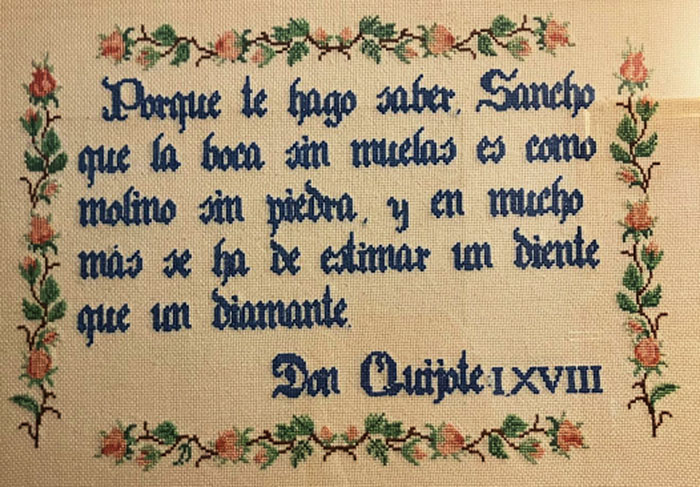 Porque te hago saber, Sancho
que la boca sin muelas es como
molino sin piedra, y en mucho
más se ha de estimar un diente
que un diamante.
Don Quijote I,XVIII